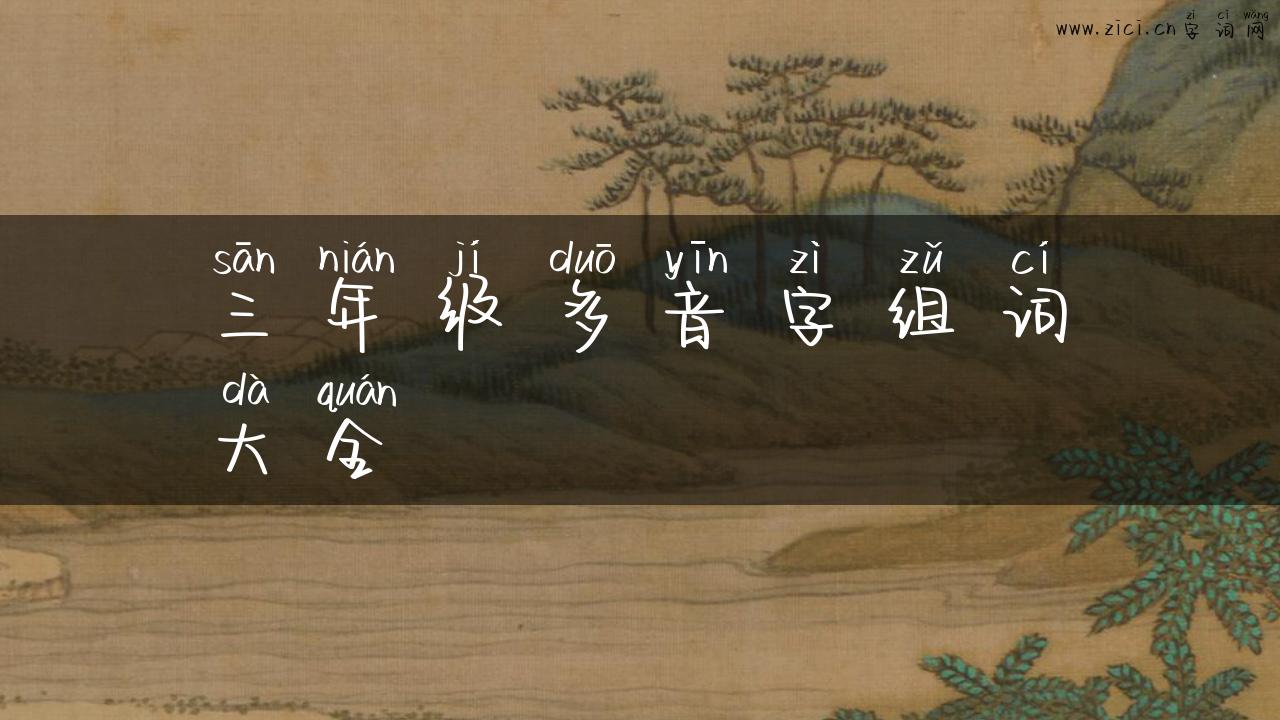 zì cí wǎng
www.zici.cn 字词网
sān nián jí duō yīn zì zǔ cí
三年级多音字组词
dà quán
大全